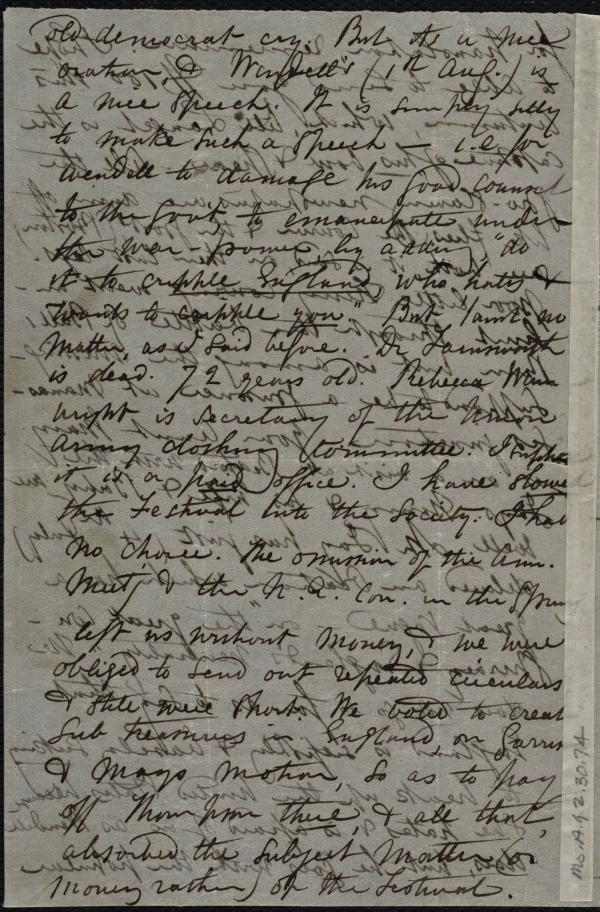 old democrat cry. But it's a nice
oration, & Wendell's (1st Aug.) is
a nice speech. It is simply silly
to make such a speech — i.e. for
Wendell to damage his good counsel
to the Govt to emancipate under
the war-power, by adding, "do
it to cripple England, who hates &
wants to cripple you." But 'taint no
matter, as I said before. Dr Farnsworth
is dead. 72 years old. Rebecca Wain
wright is Secretary of the Union
Army clothing Committee. I suppose
it is a paid office. I have
the Festival into the Society. I had
no choice. The omission of the Ann.
Meetg & the N. E. Con. in the Spring
left us without money, & we were
obliged to send out repeated circulars
& still were short. We voted to create
Sub treasuries in England, on Garrison
& Mays motion, so as to pay
off Thompson there, & all that,
absorbed the subject matter, (or
money rather) of the Festival.
Ms. A. 9. 2. 30. 74